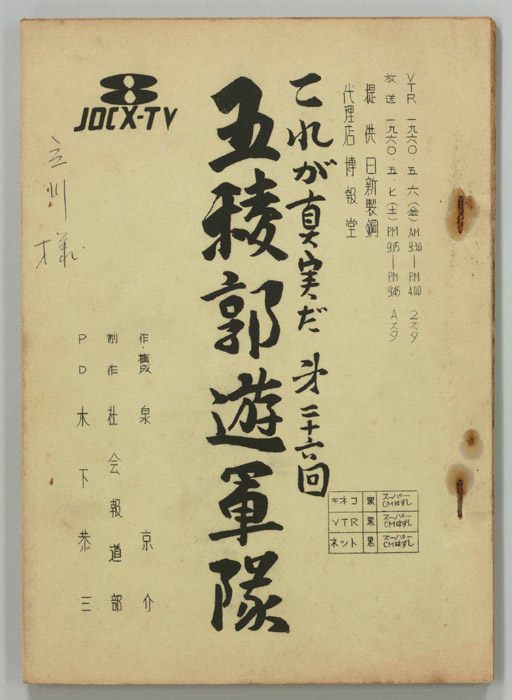 VTR 一九六〇・五・六(金)AM 9.30―PM 4.00 2スタ
放送 一九六〇・五・七(土)PM 9.15―PM 9.45 Aスタ
提供 日新製鋼
代理店 博報堂
これが真実だ 第二十六回
五稜郭遊軍隊
JOCX-TV
立川様
作・構成 泉京介
制作 社会報道部
PD 木下恭三
キネコ 黒 スーパーCMはずし
VTR 黒 スーパーCMはずし
ネット 黒 スーパーCMはずし